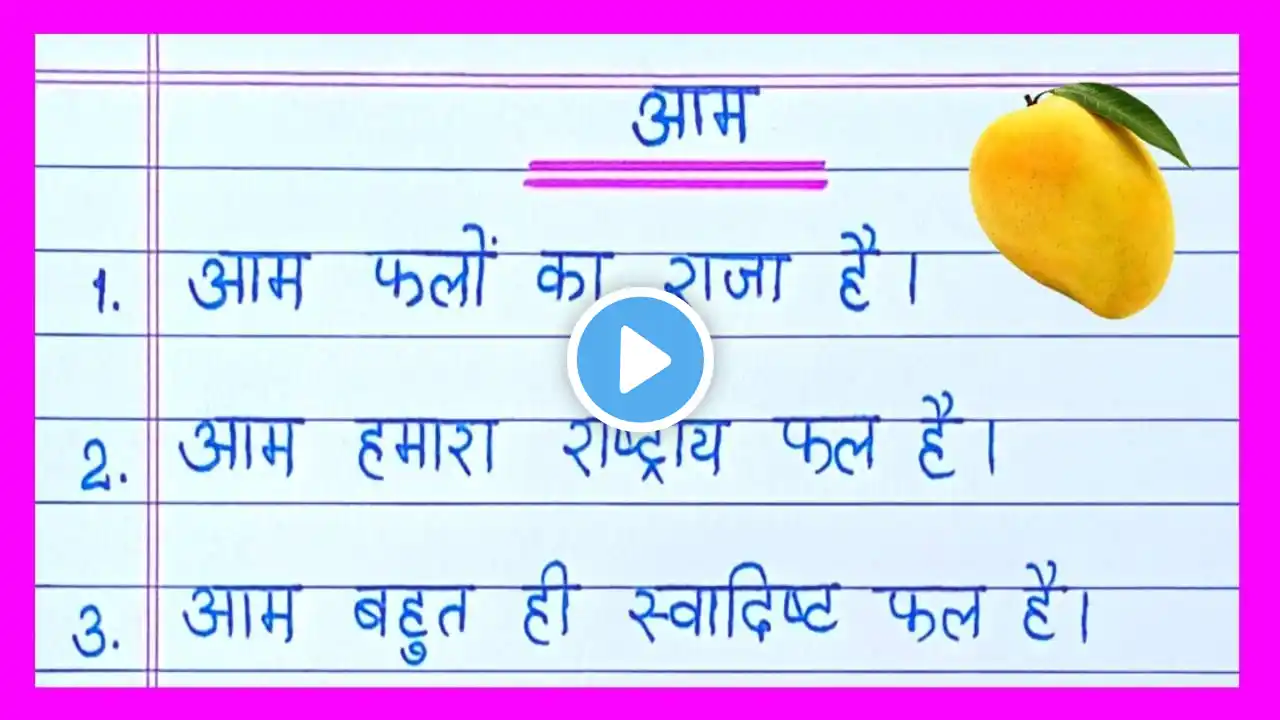 आम
1. आम फलों का राजा है।
2. आम हमारा राष्ट्रीय फल है।
3. आम बहुत ही स्वादिष्ट फल है।